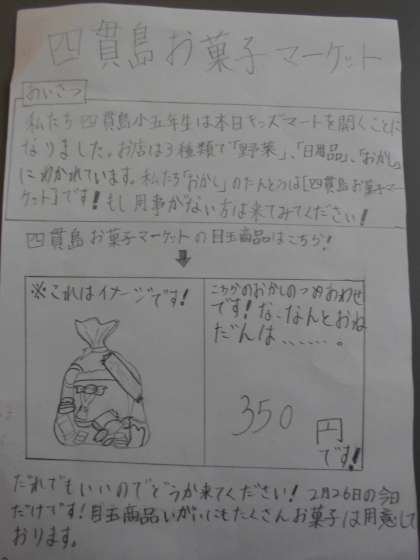 四貫島お菓子マーケット
あいさつ
私たち四貫島小五年生は本日キッズマートを開くことに
なりました。お店は3種類で「野菜」、「日用品」、「おかし」
にわかれています。私たち「おかし」のたんとうは[四貫島お菓子マー
ケット]です!もし用事がない方は来てみてください!
四貫島お菓子マーケットの目玉商品はこちら!
↓
※これはイメージです!
こちらのおかしのつめあわせ
です!な、なんとおね
だんは……。
350円
です!
だれでもいいのでどうか来てください!2月26日の今日
だけです!目玉商品いがいにもたくさんお菓子は用意して
おります。